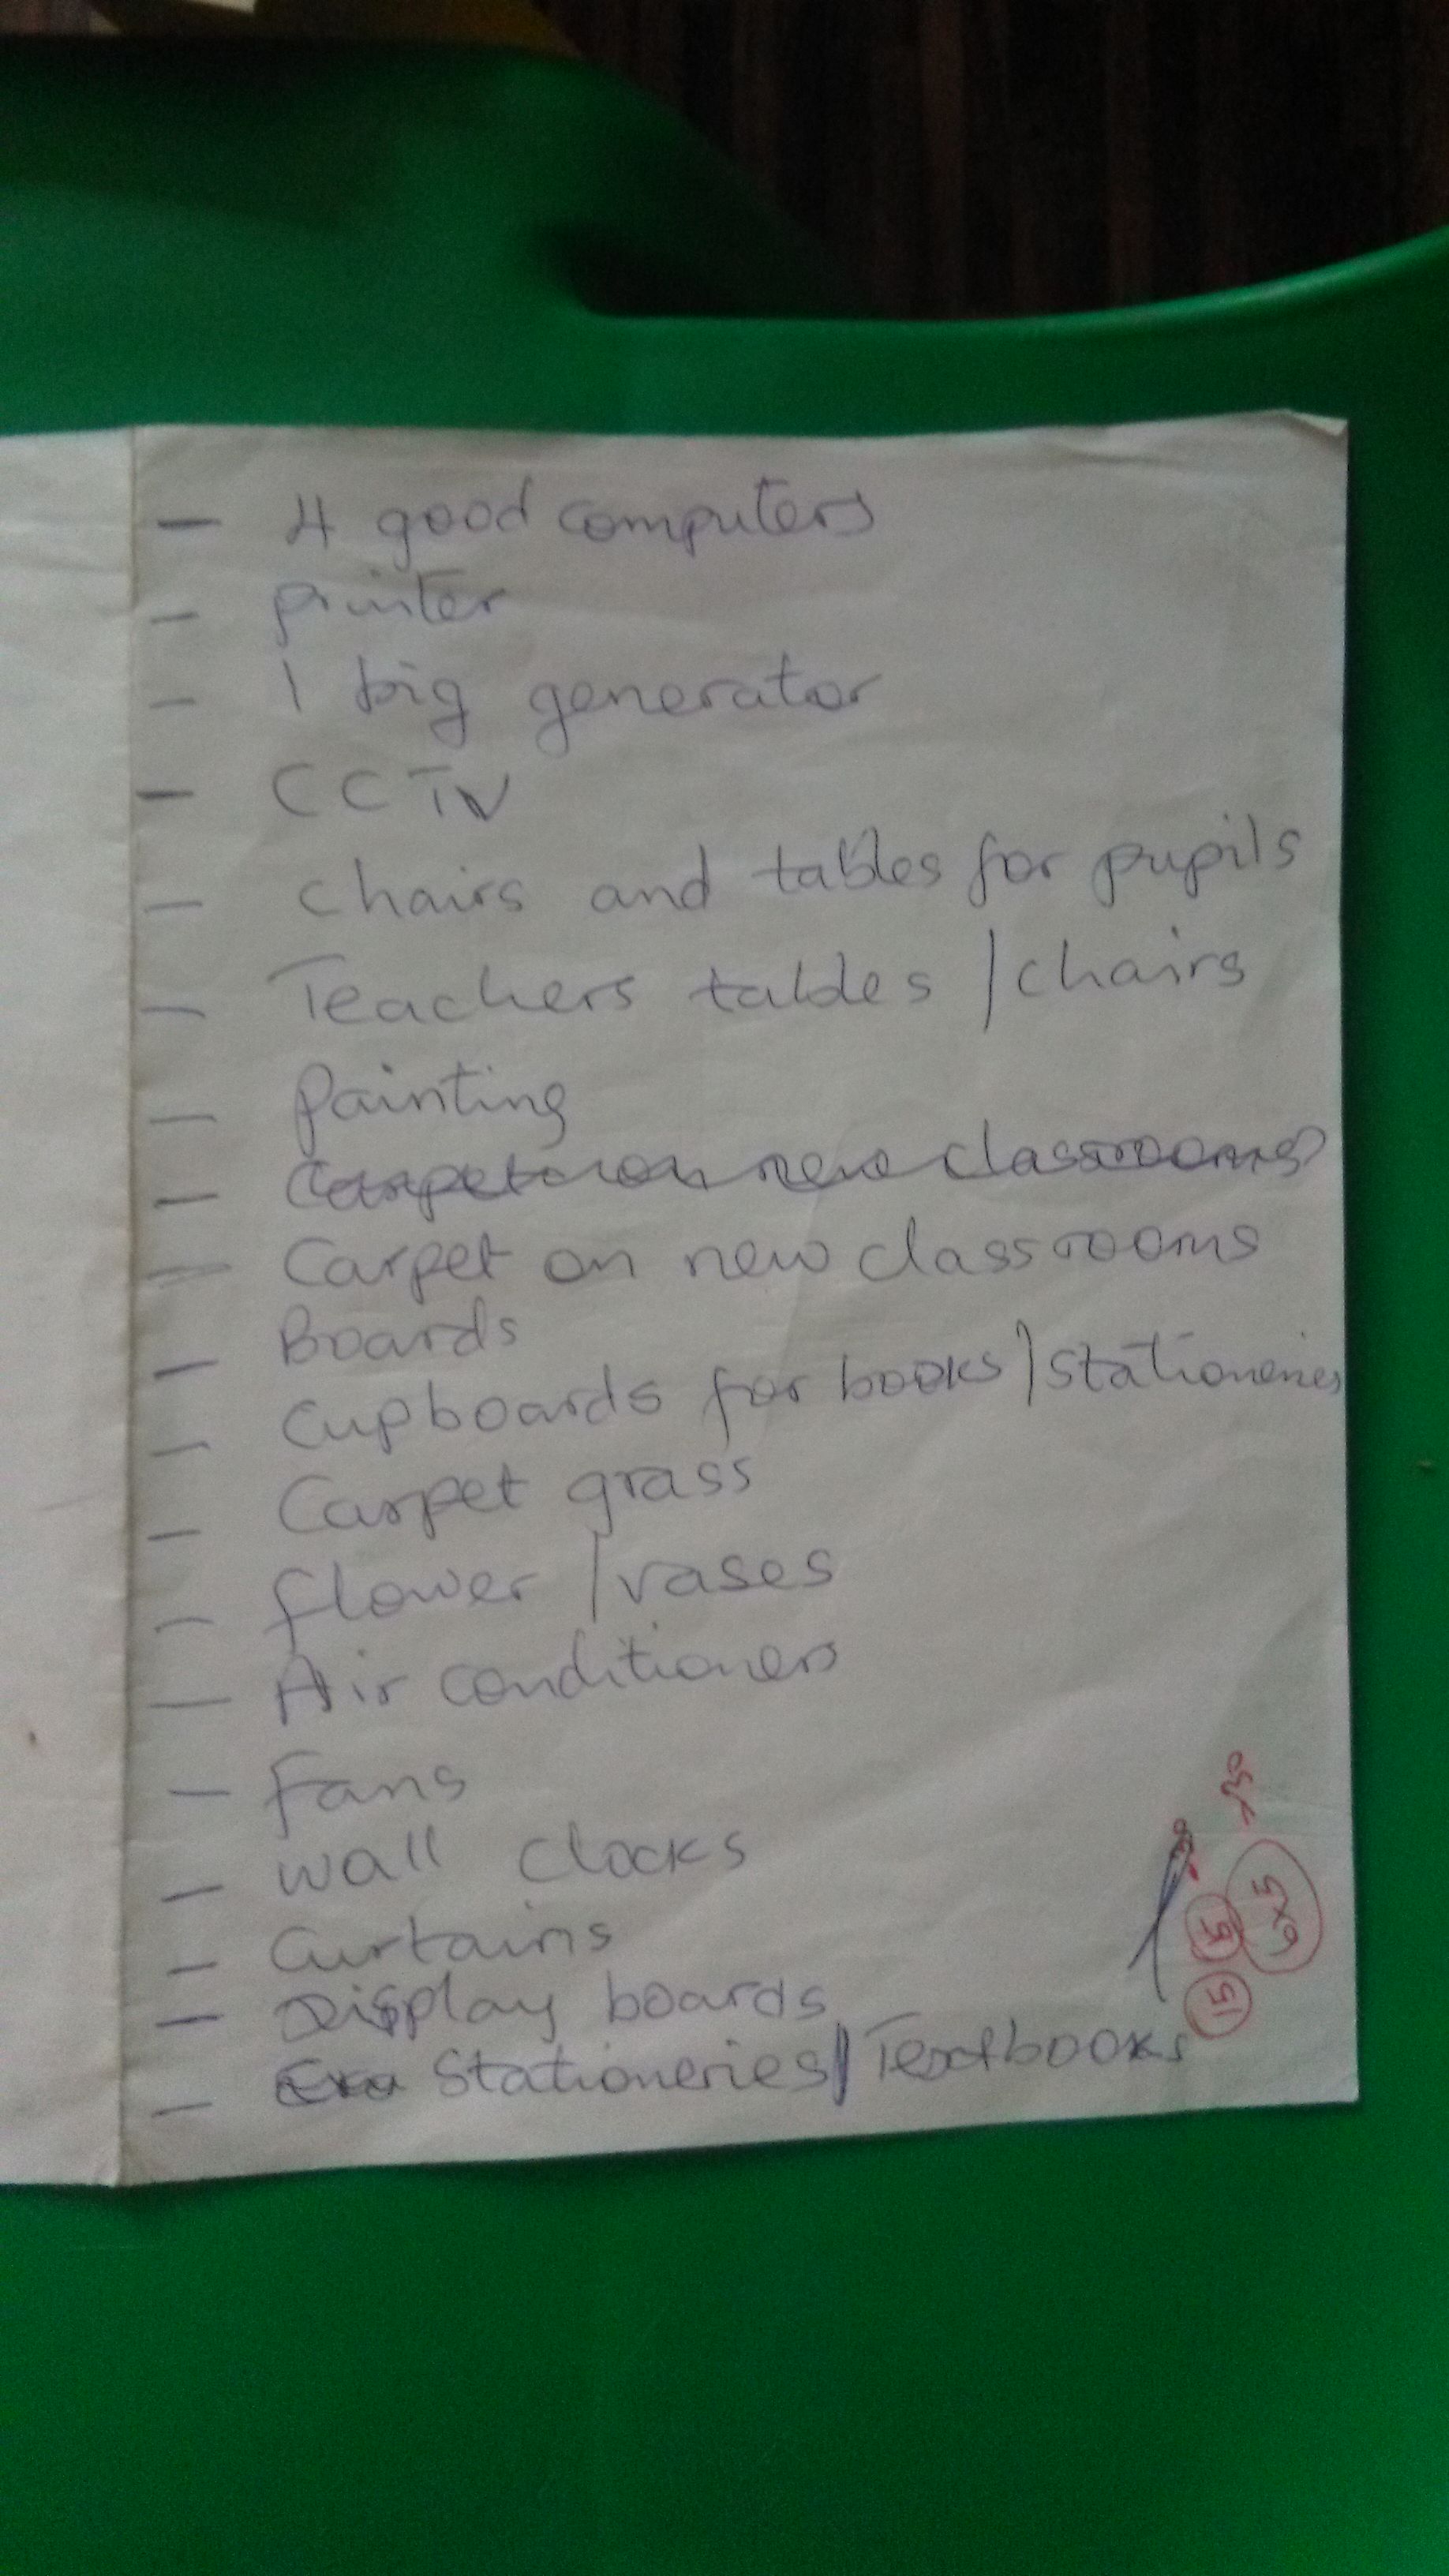 - 4 good computers
- printer
- 1 big generator
- CCTV
- chairs and tables for pupils
- Teachers tables / chairs
- Painting
- Carpet on new classrooms
- Carpet on new classrooms
- Boards
- Cupboards for books / stationeries
- Carpet grass
- flower / vases
- Air conditioners
- Fans
- wall clocks
- Curtains
- Display boards
- Stationeries / Textbooks
6x5
15
15